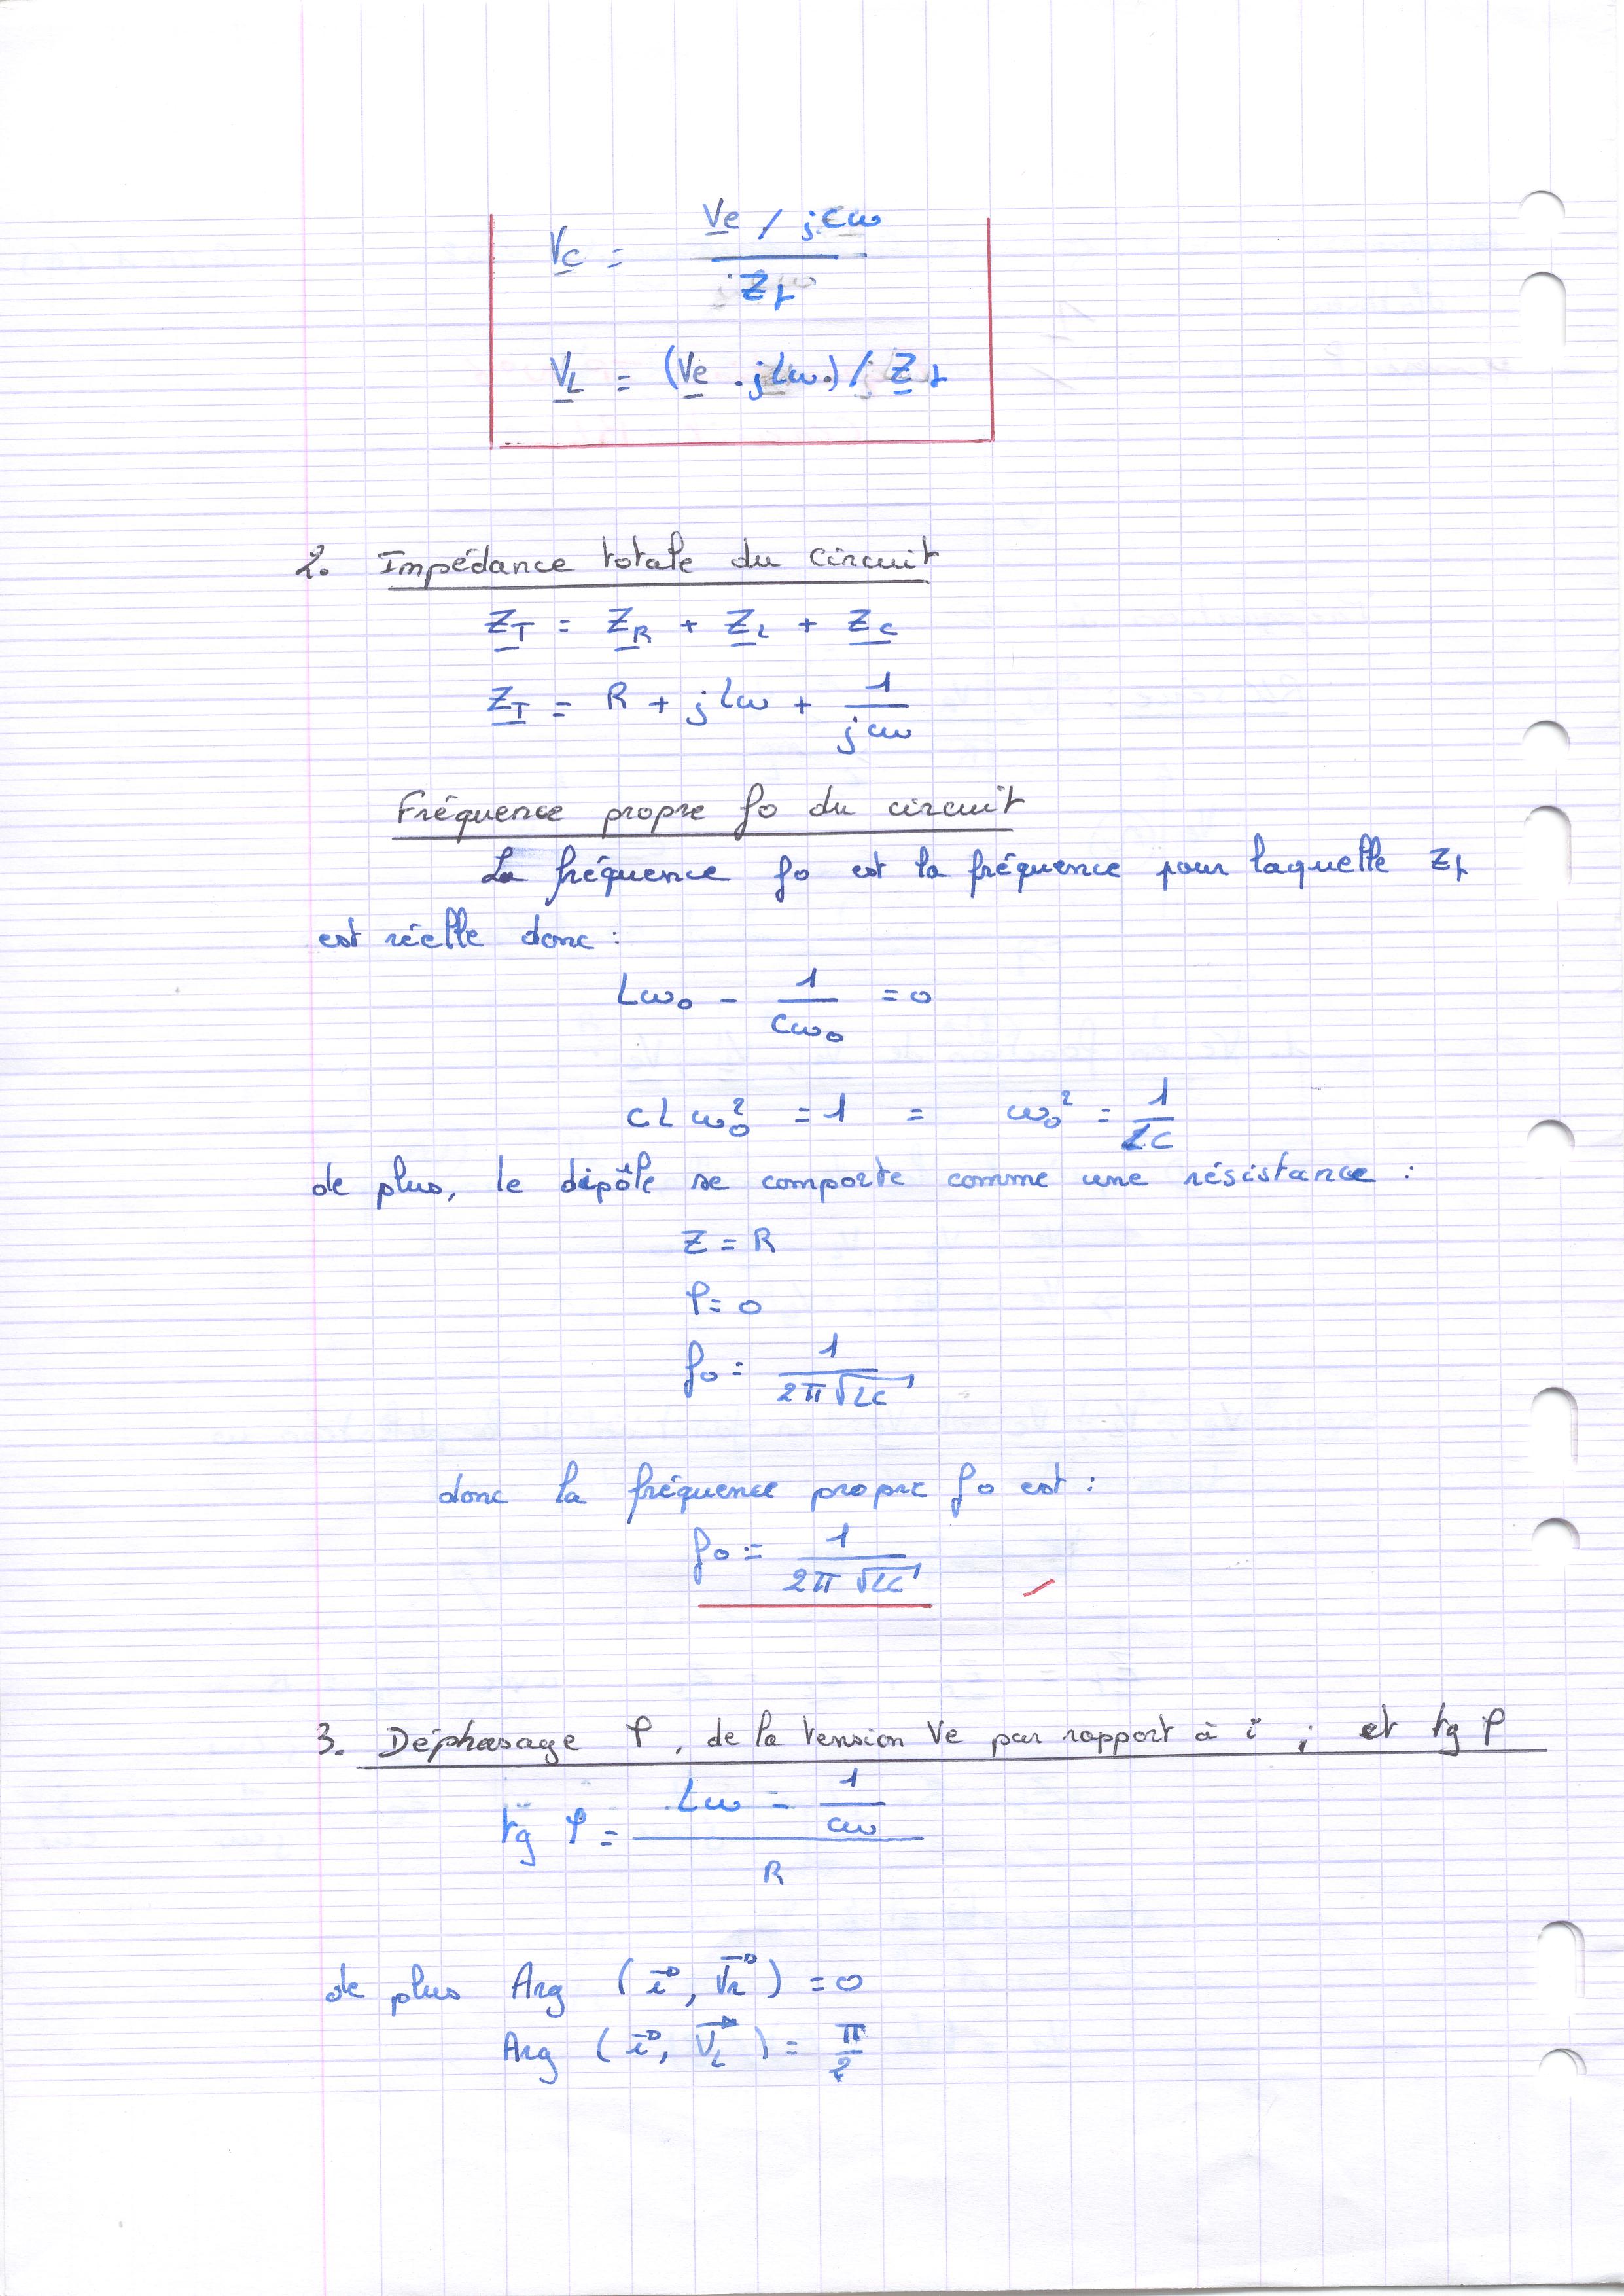 Vc = (Ve / jCω) / Zt
VL = (Ve . jLω.) / Zt
2. Impédance totale du circuit
ZT = ZR + ZL + ZC
ZT = R + jLω + 1/(jCω)
Fréquence propre fo du circuit
La fréquence fo est la fréquence pour laquelle Zt
est réelle donc :
Lω₀ - 1/(Cω₀) = 0
CLω₀² = 1 = ω₀² = 1/(LC)
de plus, le dipôle se comporte comme une résistance :
Z = R
φ = 0
fo = 1/(2π√LC)
donc la fréquence propre fo est :
fo = 1/(2π√LC)
3. Déphasage φ, de la tension Ve par rapport à i ; et tg φ
tg φ = (Lω - 1/(Cω)) / R
de plus Arg (i⃗, V⃗r) = 0
Arg (i⃗, V⃗L) = π/2